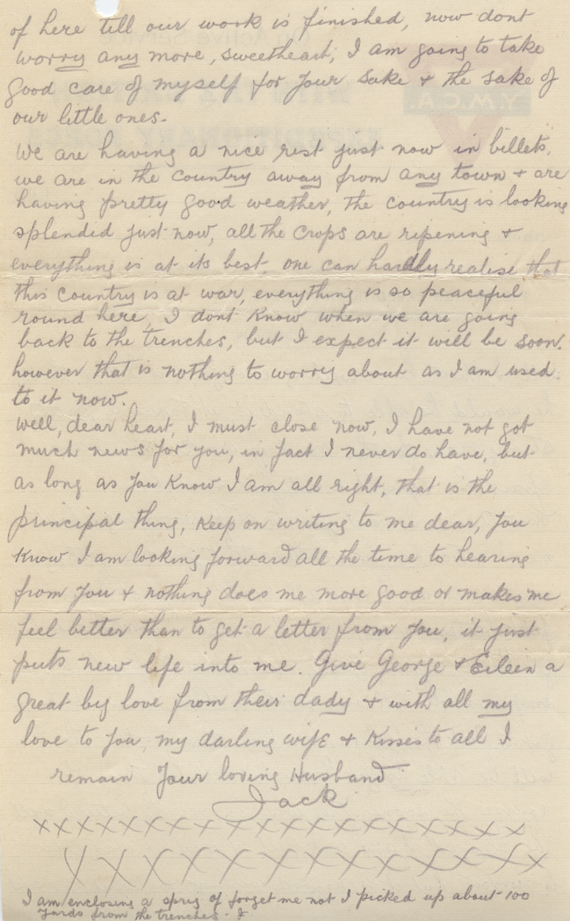 of here till our work is finished, now dont
worry any more, sweetheart, I am going to take
good care of myself for your sake & the sake of
our little ones.
We are having a nice rest just now in billets,
we are in the country away from any town & are
having pretty good weather, the country is looking
splendid just now, all the crops are ripening &
everything is at its best, one can hardly realise that
this country is at war, everything is so peaceful
round here, I dont know when we are going
back to the trenches, but I expect it will be soon.
however that is nothing to worry about as I am used
to it now.
Well, dear heart, I must close now, I have not got
much news for you, in fact I never do have, but
as long as you know I am all right, that is the
principal thing, keep on writing to me dear, you
know I am looking forward all the time to hearing
from you & nothing does me more good or makes me
feel better than to get a letter from you, it just
puts new life into me. Give George & Eileen a
great big love from their dady & with all my
love to you, my darling wife & kisses to all I
remain your loving Husband
Jack
xxxxxxxxxxxxxxxxxx
XXXXXXXXXXXXX
I am enclosing a sprig of forget me not I picked up about 100
yards from the trenches - J
Y.M.C.A.